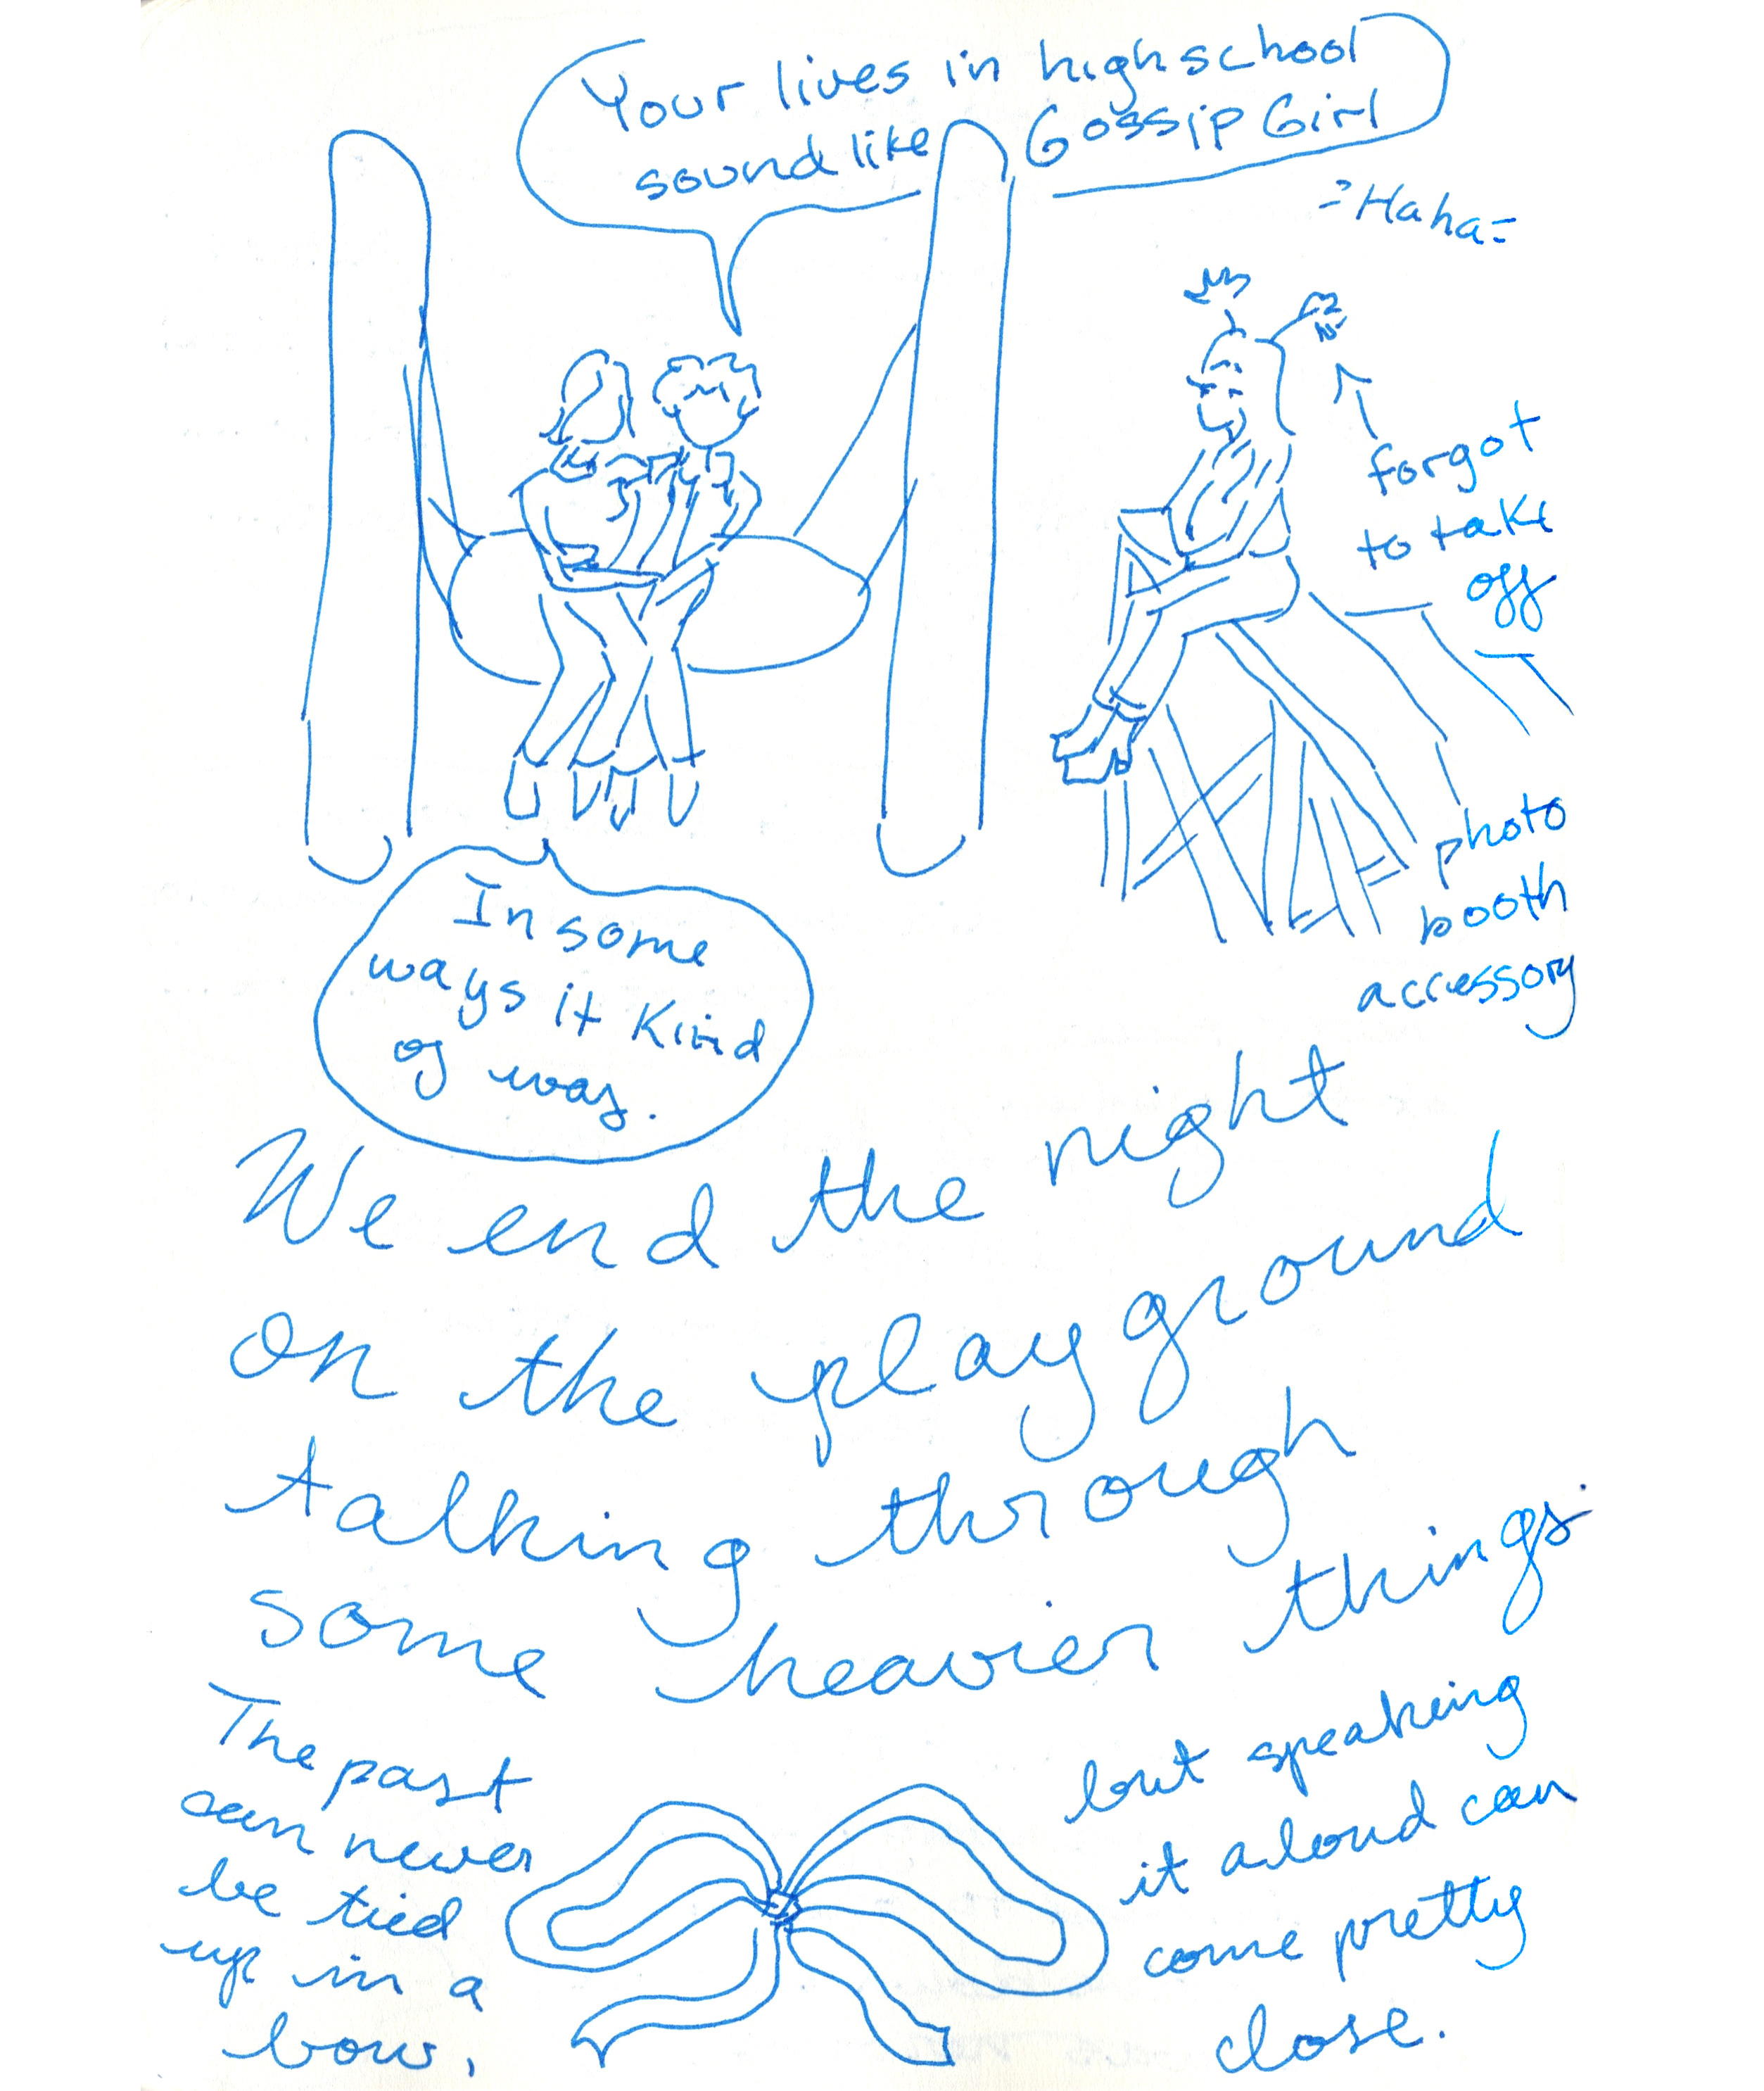 Your lives in high school
sound like Gossip Girl
=Haha=
forgot
to take
off
photo
booth
accessory
In some
ways it kind
of way.
We end the night
on the playground
talking through
some heavier things.
The past
can never
be tied
up in a
bow,
but speaking
it aloud can
come pretty
close.